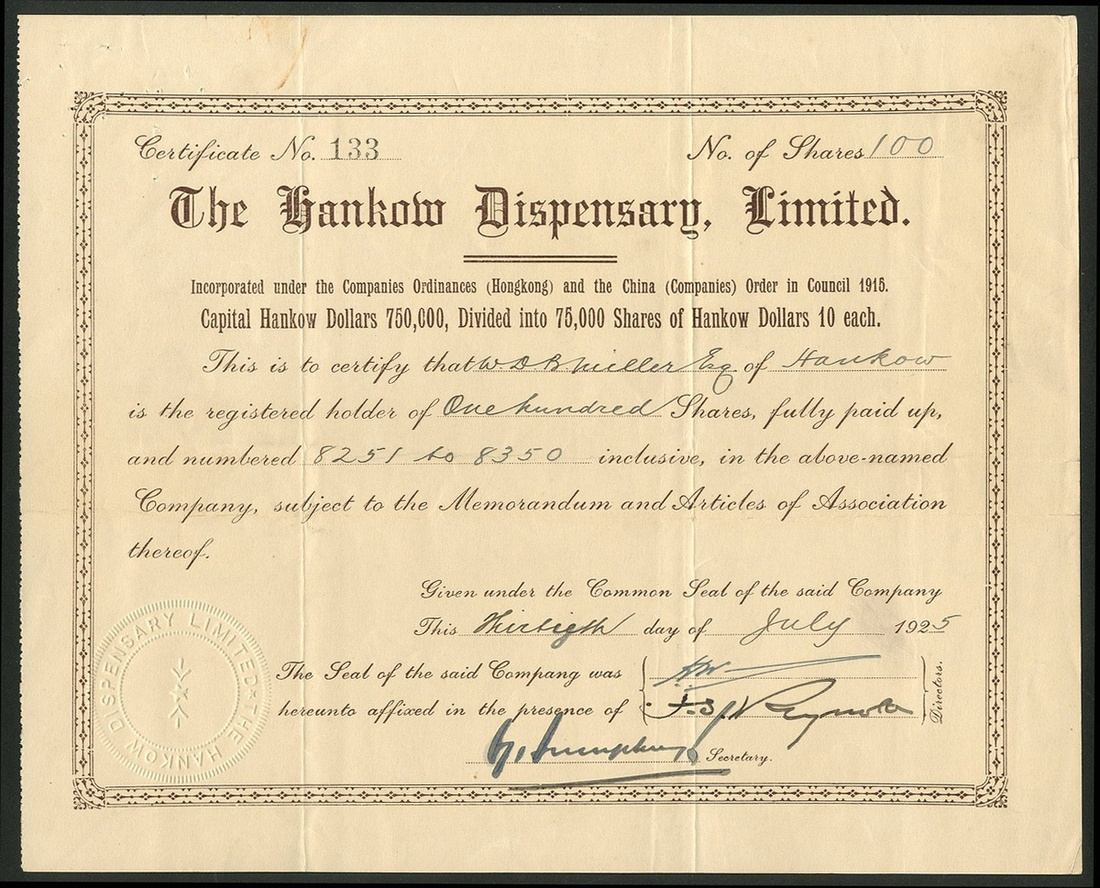 Certificate No. 133
No. of Shares 100
The Hankow Dispensary, Limited.
Incorporated under the Companies Ordinances (Hongkong) and the China (Companies) Order in Council 1915.
Capital Hankow Dollars 750,000, Divided into 75,000 Shares of Hankow Dollars 10 each.
This is to certify that W. D. B. Miller Esq of Hankow
is the registered holder of One hundred Shares, fully paid up,
and numbered 8251 to 8350 inclusive, in the above-named
Company, subject to the Memorandum and Articles of Association
thereof.
Given under the Common Seal of the said Company
This Thirtieth day of July 1925
The Seal of the said Company was
hereunto affixed in the presence of
Reynolds
Directors.
Secretary.
THE HANKOW DISPENSARY LIMITED